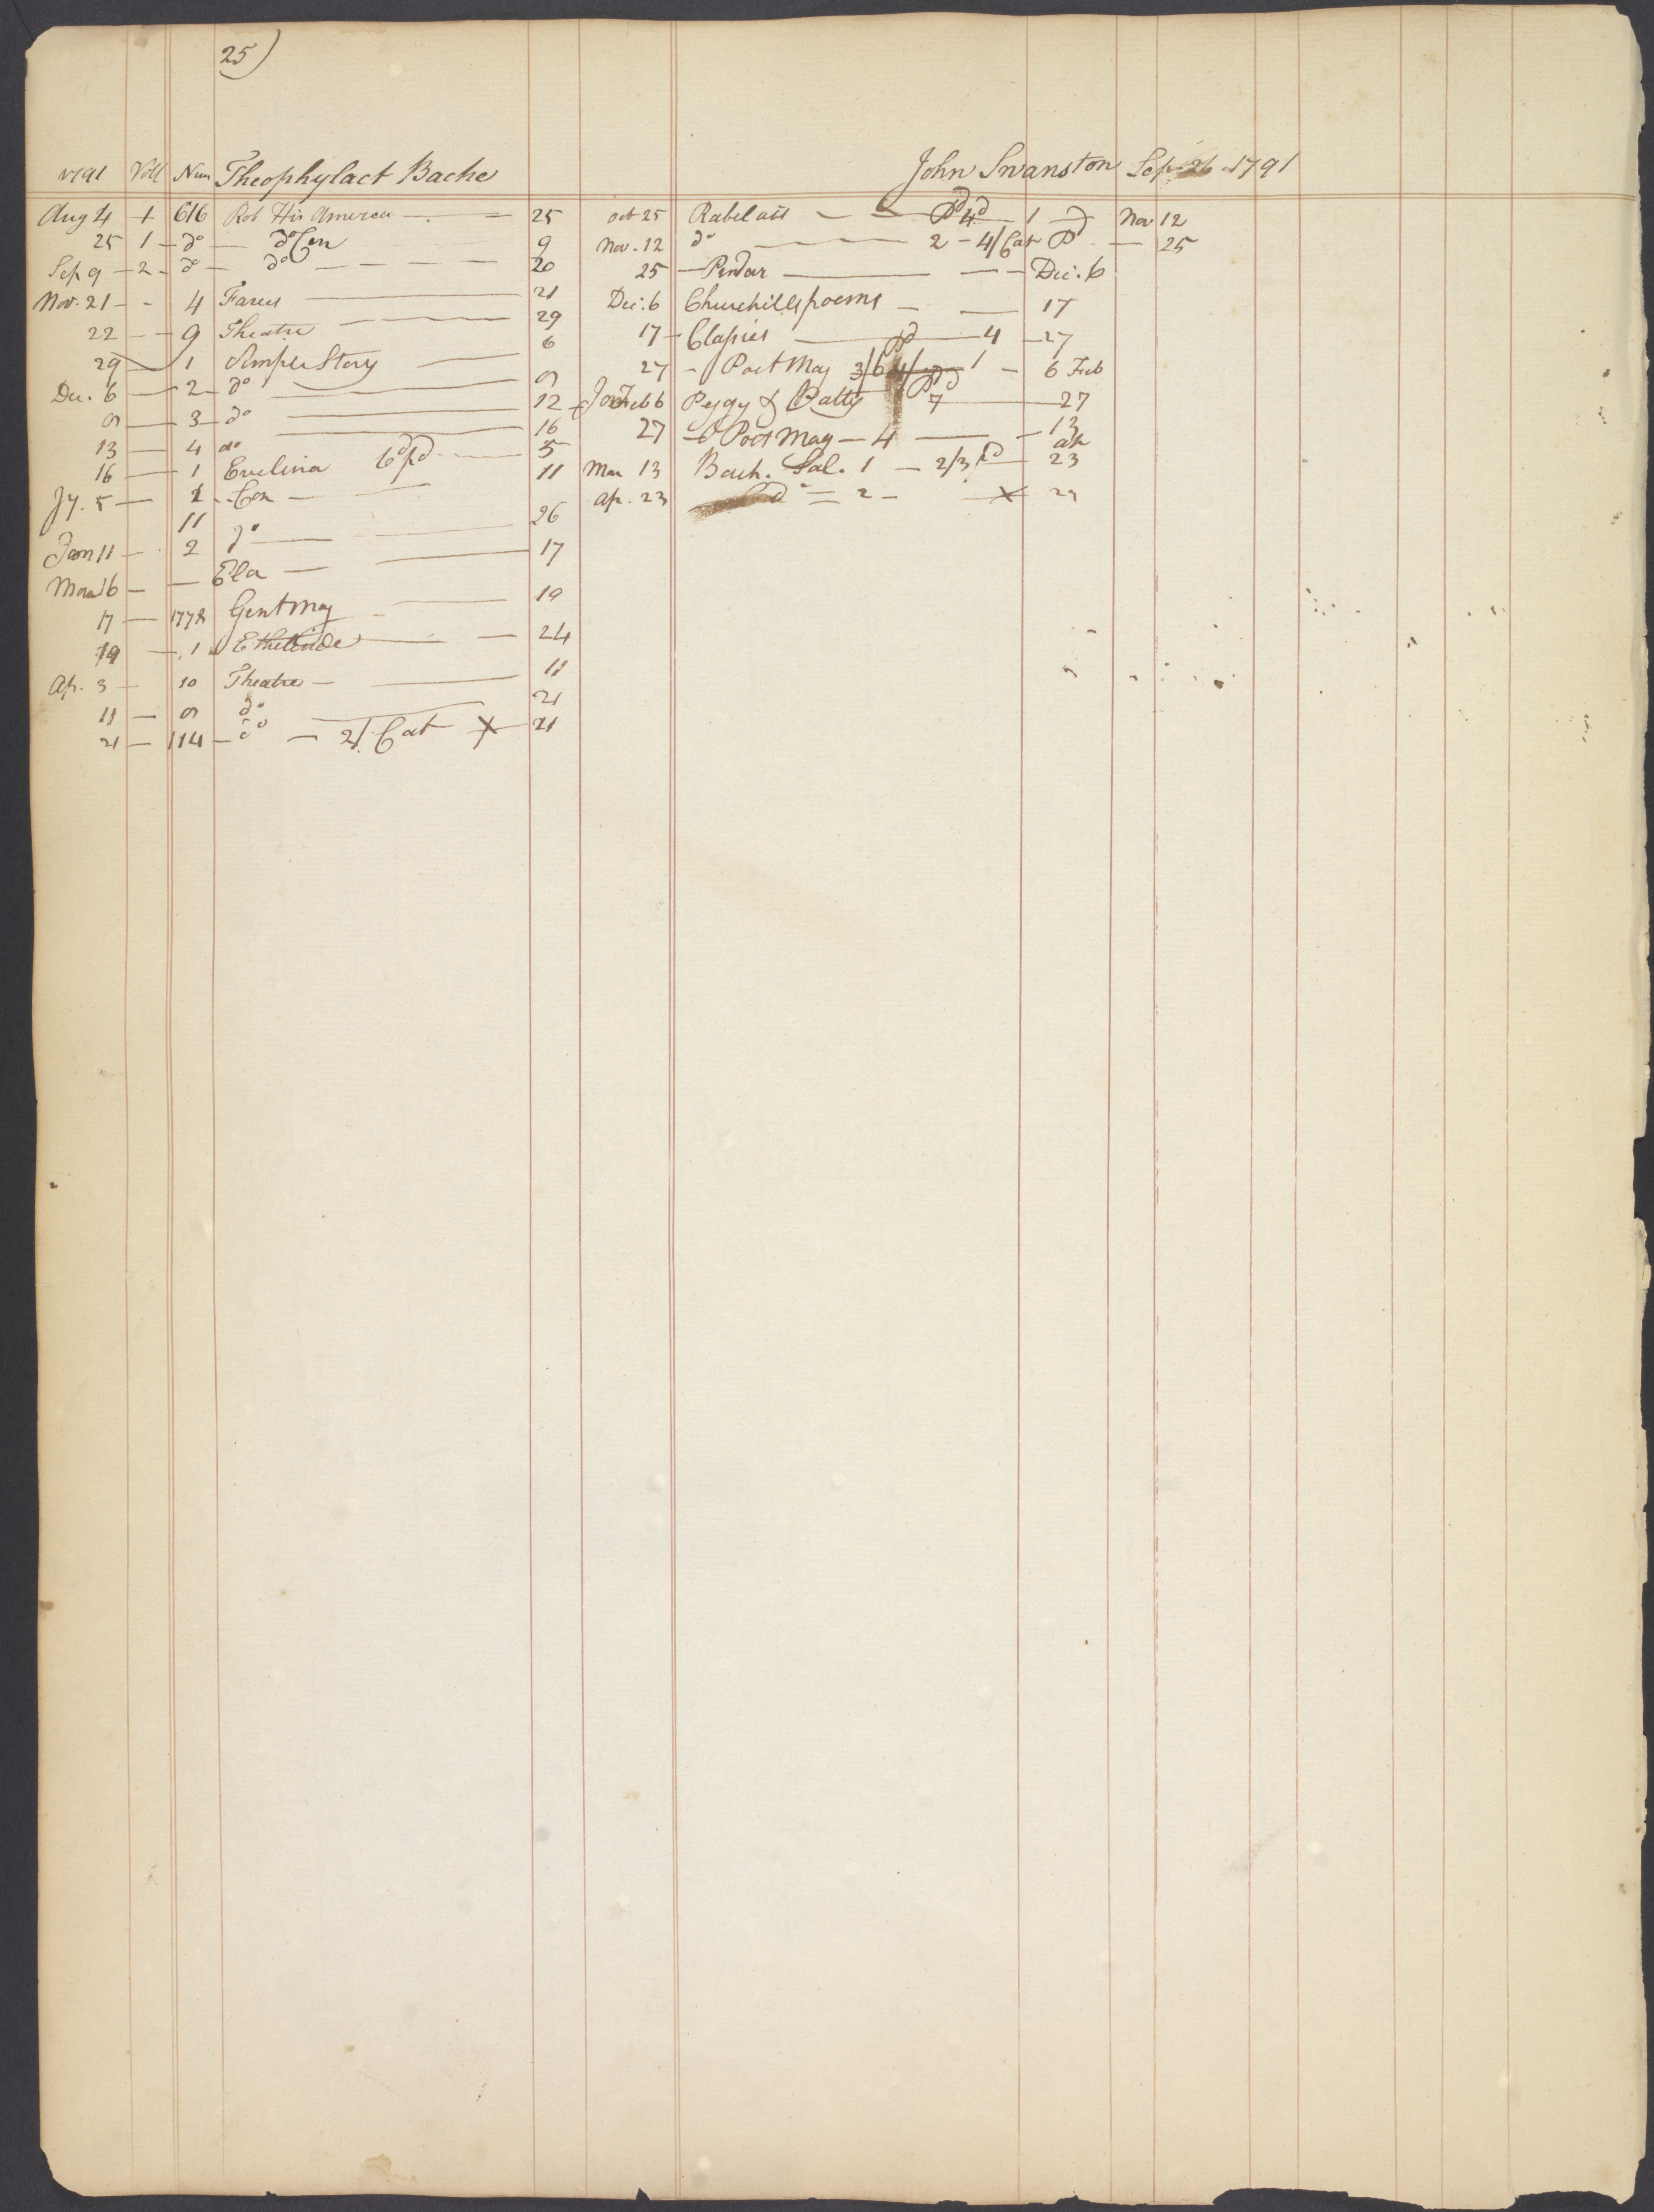 25)
1791 Voll Num Theophylact Bache
Aug 4 + 616 Rob His America 25
25 1 do do Con 9
Sep 9 2 do do 20
Nov. 21 4 Farces 21
22 9 Theatre 29
29 1 Simple Story 6
Dec. 6 2 do 9
9 3 do 12
13 4 do 16
16 1 Evelina pd 5
Jy. 5 2 Con 11
11
Jan 11 2 do 26
Mar 16 Ela 17
17 1778 Gent Mag 19
19 1 Ethelinde 24
Ap. 3 10 Theatre 11
11 9 do 21
21 114 do 2/ Cat X 21
John Swanston Sep. 26 1791
Oct 25 Rabelais Pd 4 1 Nov 12
Nov. 12 do 2 4/ Cat Pd 25
25 Pindar Dec. 6
Dec. 6 Churchills poems 17
17 Clapies pd 4 27
27 Poet Mag 3/6 4/ 1 6 Feb
Feb 6 Pegy & Patty Pd 7 27
27 Poet Mag 4 13
Mar 13 Bach. Sal. 1 2/3 pd ap 23
Ap. 23 do 2 X 29